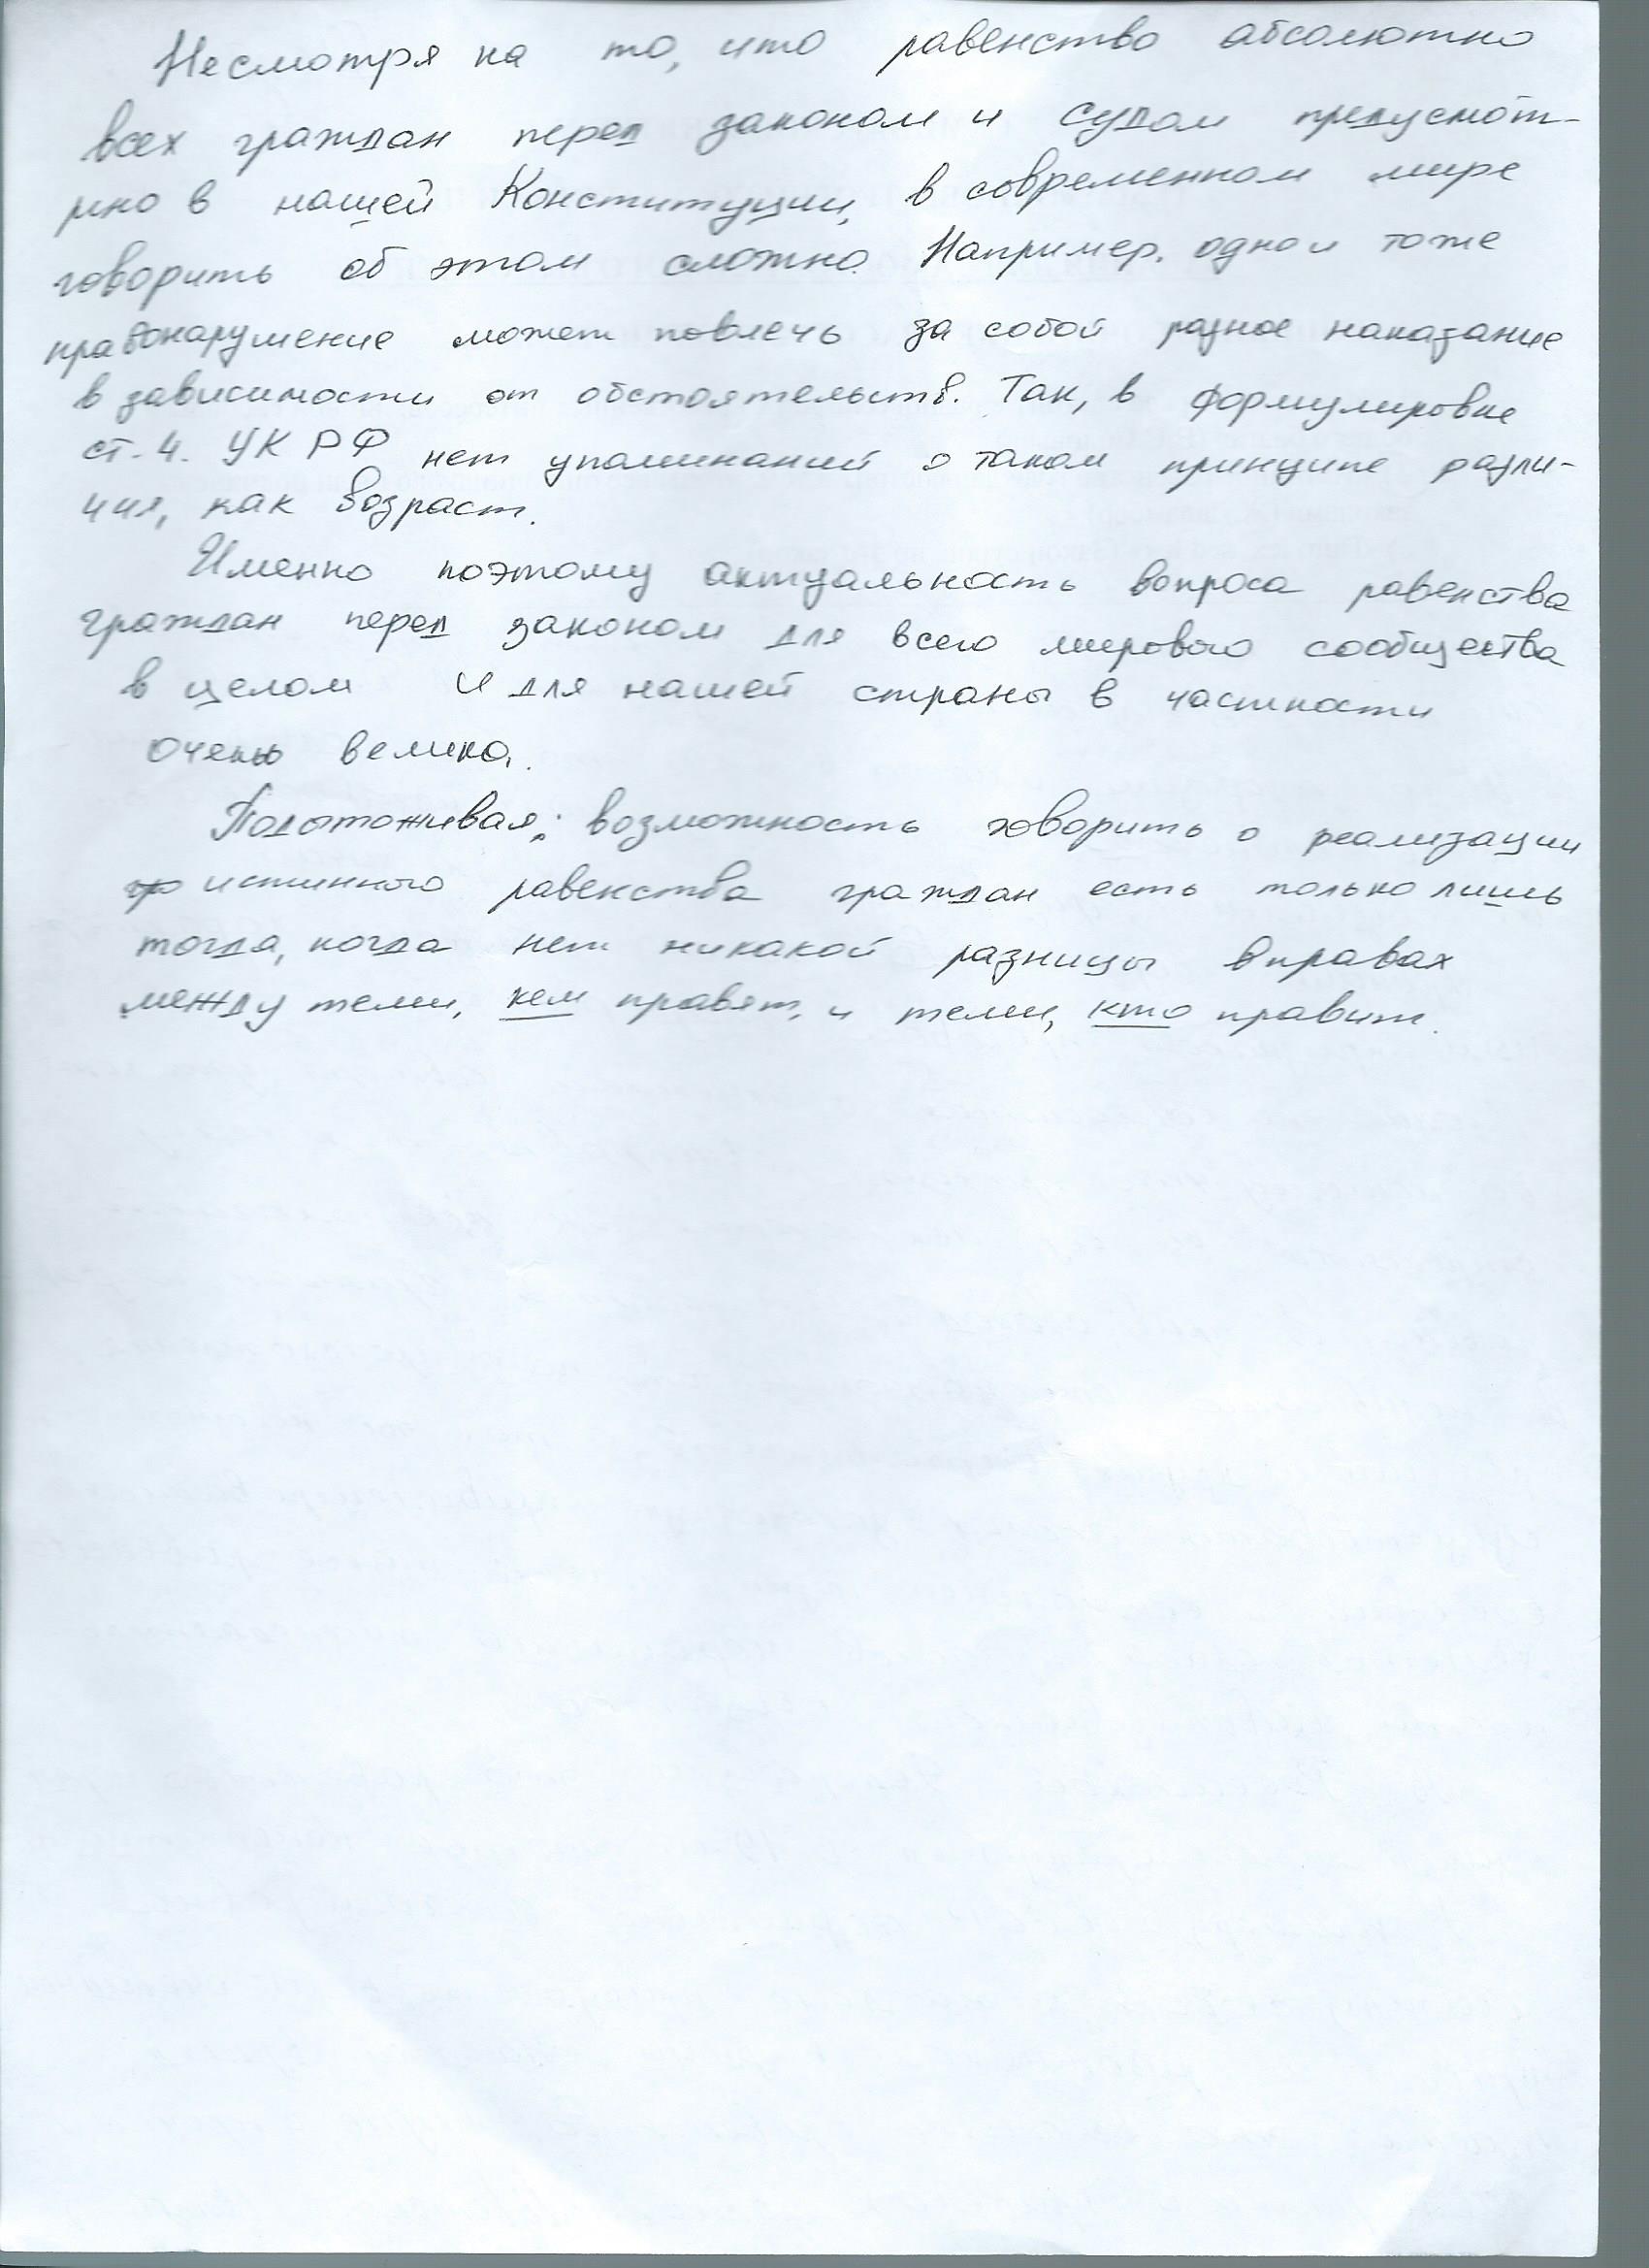 Несмотря на то, что равенство абсолютно
всех граждан перед законом и судом предусмот-
рно в нашей Конституции, в современном мире
говорить об этом сложно. Например, одно и тоже
правонарушение может повлечь за собой разное наказание
в зависимости от обстоятельств. Так, в формулировке
ст. 4. УК РФ нет упоминаний о таком принципе разли-
чия, как возраст.
Именно поэтому актуальность вопроса равенства
граждан перед законом для всего мирового сообщества
в целом и для нашей страны в частности
очень велика.
Подытоживая: возможность говорить о реализации
истинного равенства граждан есть только лишь
тогда, когда нет никакой разницы в правах
между теми, кем правят, и теми, кто правит.